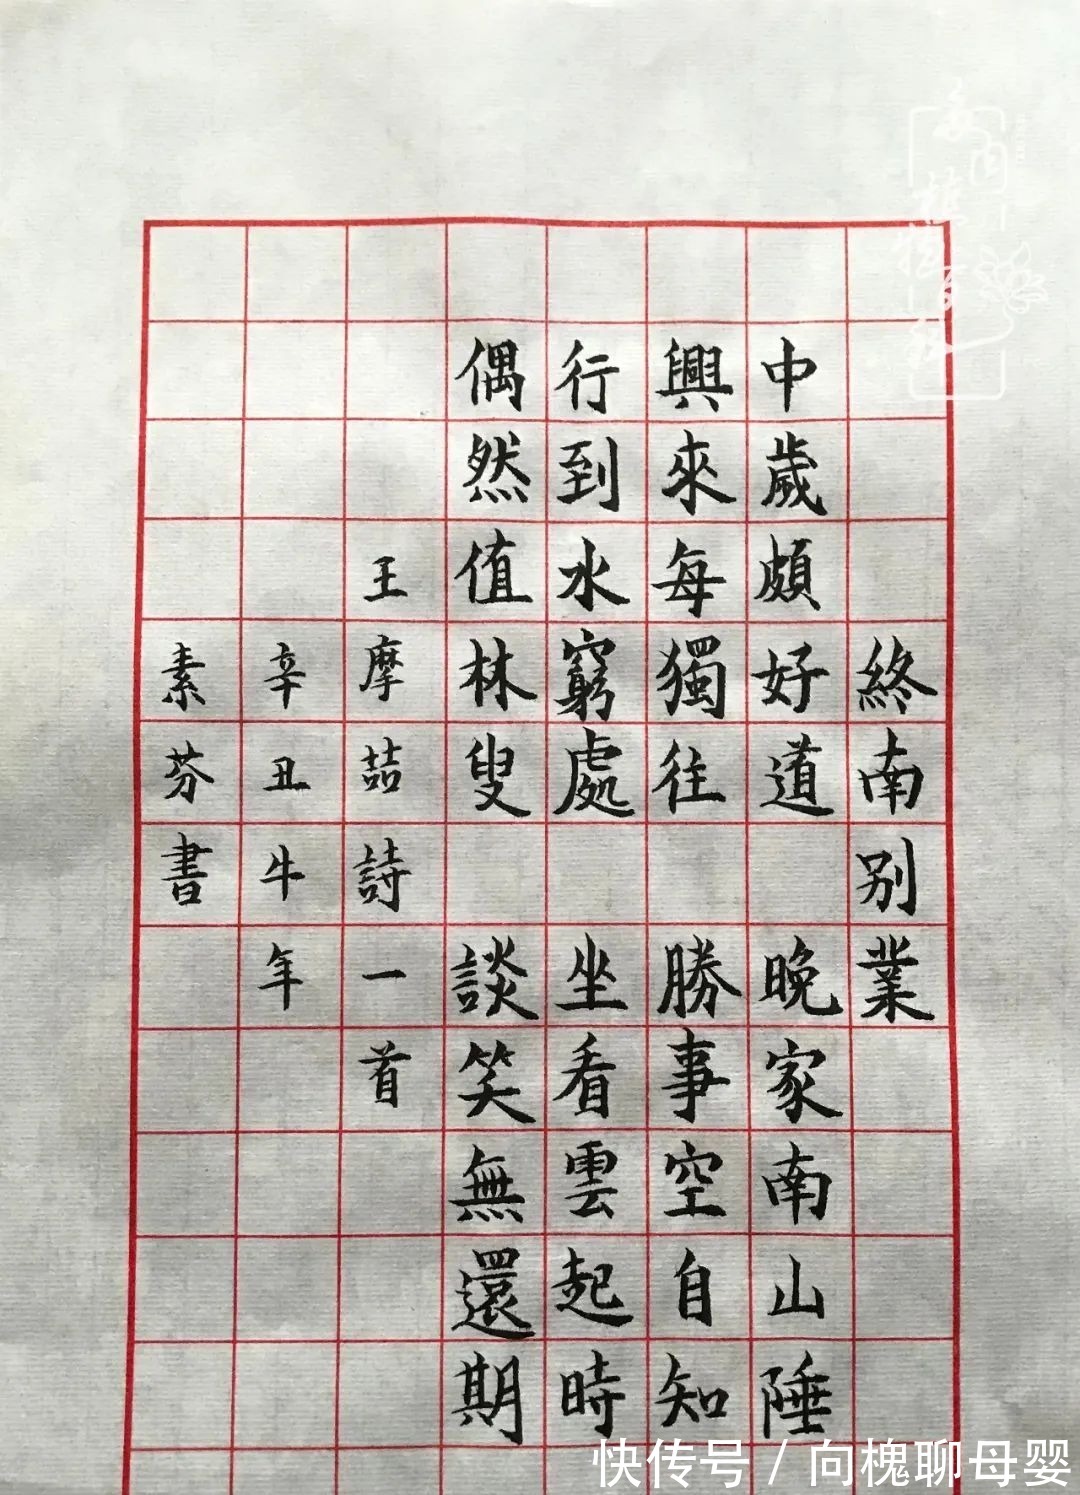 終南別業
中歲頗好道 晚家南山陲
興來每獨往 勝事空自知
行到水窮處 坐看雲起時
偶然值林叟 談笑無還期
王摩喆詩一首
辛丑牛年
素芬書
快传号 / 向槐聊母婴